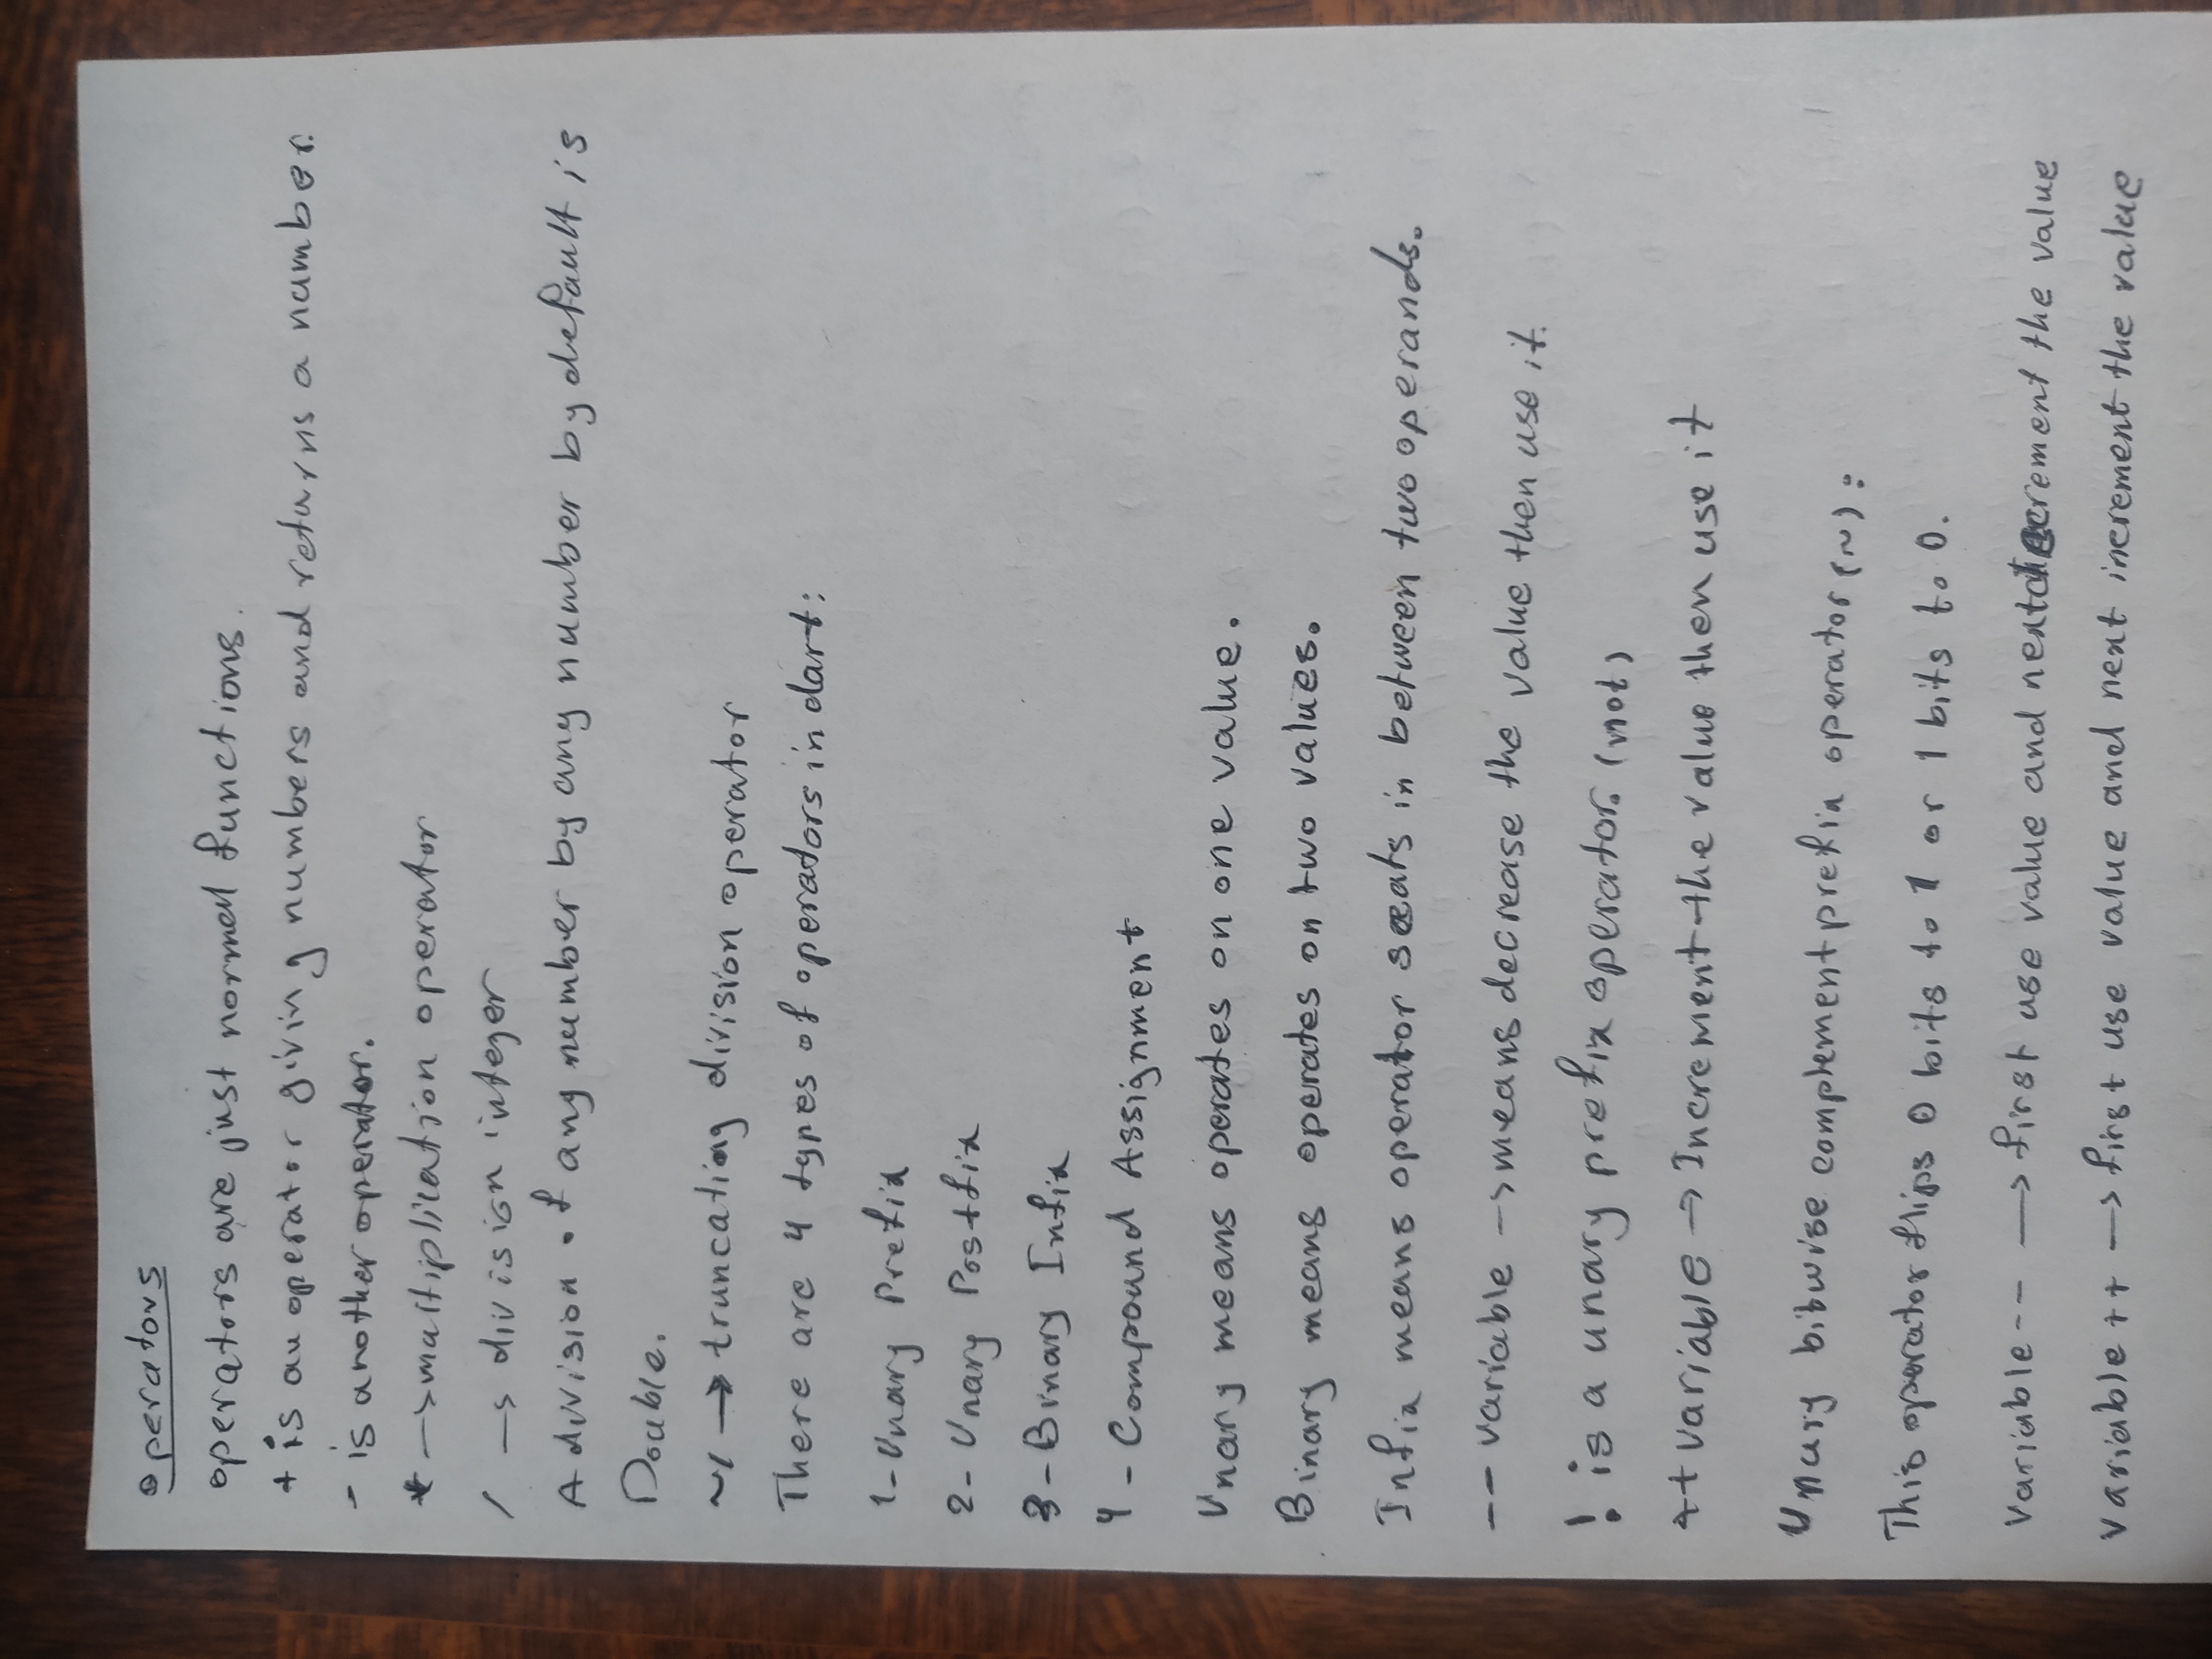 operators
operators are just normal functions.
+ is an operator giving numbers and returns a number.
- is another operator.
* -> multiplication operator
/ -> division integer
A division of any number by any number by default is
Double.
~/ -> truncating division operator
There are 4 types of operators in dart:
1- Unary Prefix
2- Unary Postfix
3- Binary Infix
4- Compound Assignment
Unary means operates on one value.
Binary means operates on two values.
Infix means operator seats in between two operands.
-- variable -> means decrease the value then use it.
! is a unary prefix operator. (not)
++ variable -> Increment the value then use it
Unary bitwise complement prefix operator (~):
This operator flips 0 bits to 1 or 1 bits to 0.
Variable -- -> first use value and next decrement the value
Variable ++ -> first use value and next increment the value